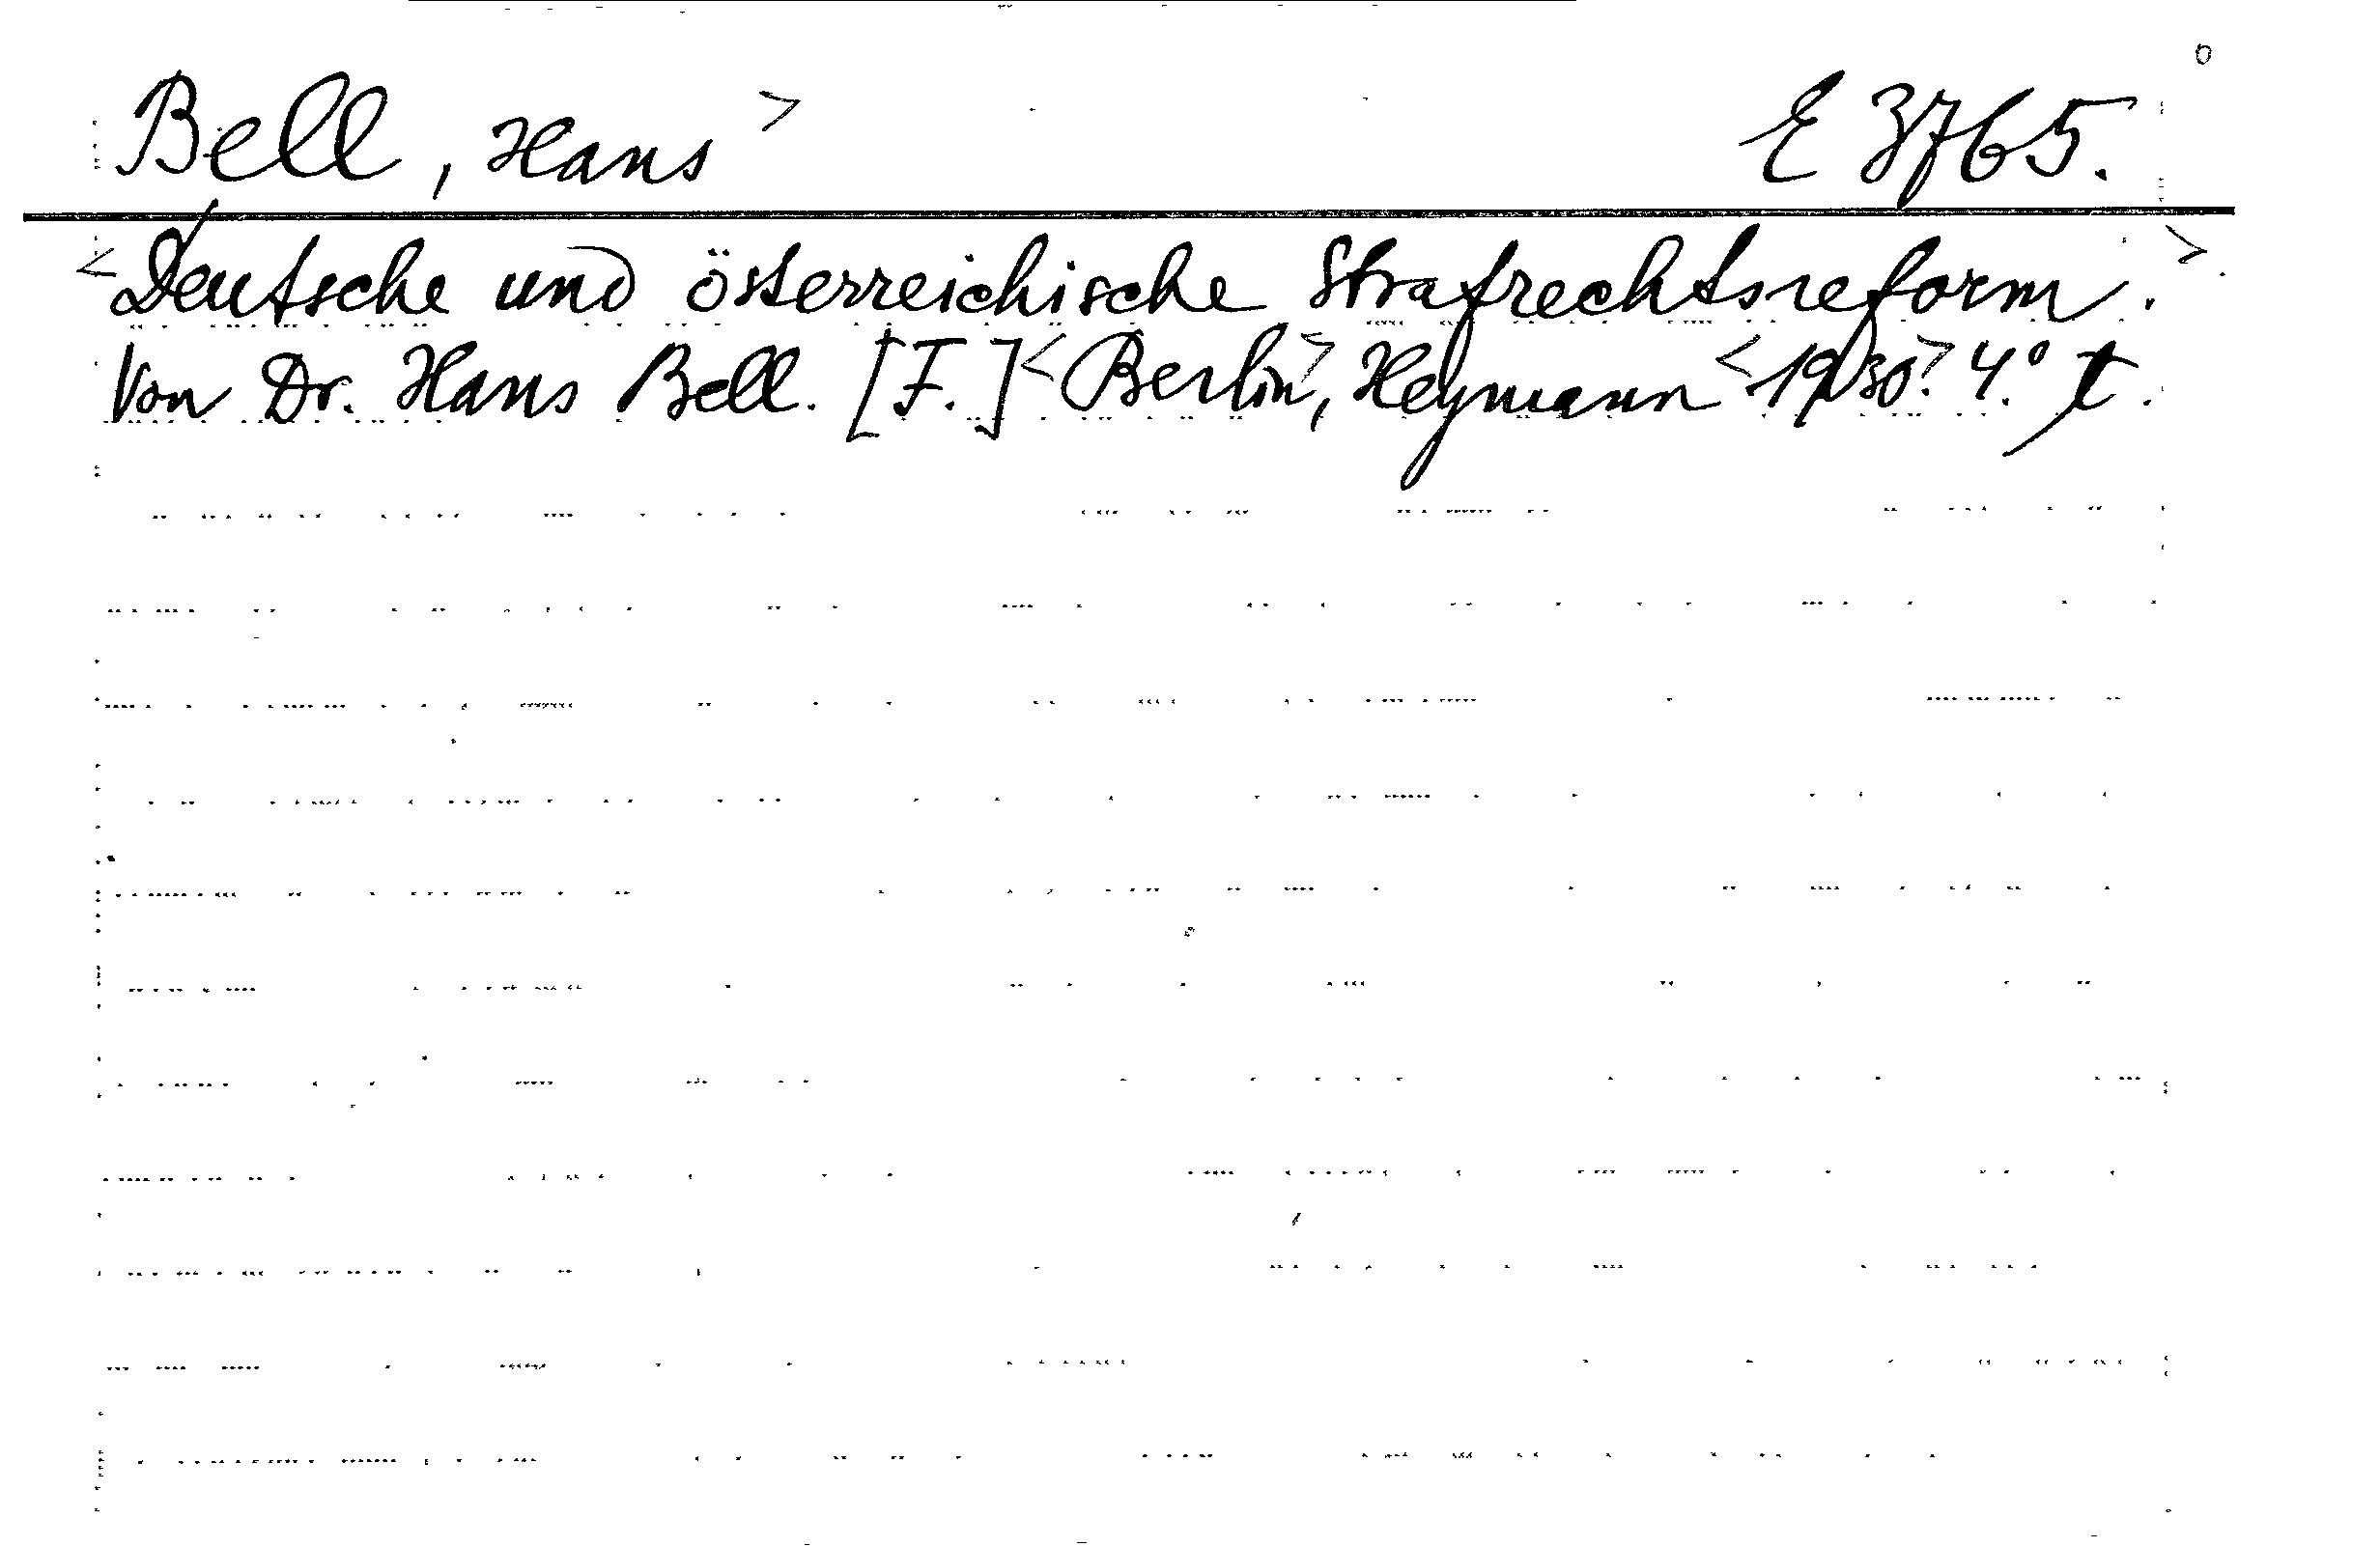 Bell, Hans> E 3765.
<Deutsche und österreichische Strafrechtsreform.>
Von Dr. Hans Bell. [F.] <Berlin>, Heymann <1930>. 4.° t.